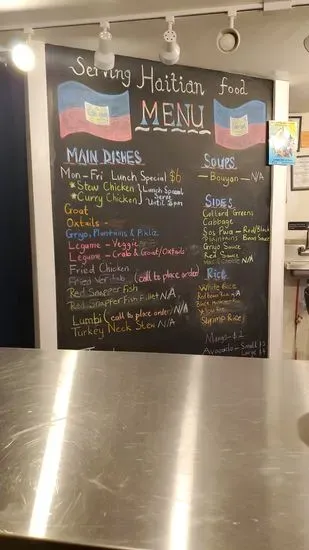 Serving Haitian food
MENU
MAIN DISHES
Mon-Fri Lunch Special $6
*Stew Chicken
*Curry Chicken
Lunch Special
Serv
Until
Goat
Oxtails -
Griyo, Plantains & Pikliz
Legume - Veggie
Legume - Crab & Goat/Oxtails
Fried Chicken
Fried (call to place order)
Red Snapper Fish
Red Snapper Fish Fillet N/A
Lumbi (call to place order) N/A
Turkey Neck Stew N/A
SOUPS
- Bouyon - N/A
SIDES
Collard Greens
Cabbage
Sos Pwa - Red/Black
Bean Sauce
Plaintains
Griyo Sauce
Red Sauce
Mac & Cheese N/A
Rice
White Rice
Red bean Rice N/A
Black
Yellow Rice
Shrimp Rice
Mango - $2
Avocado - Small $3
Large $4